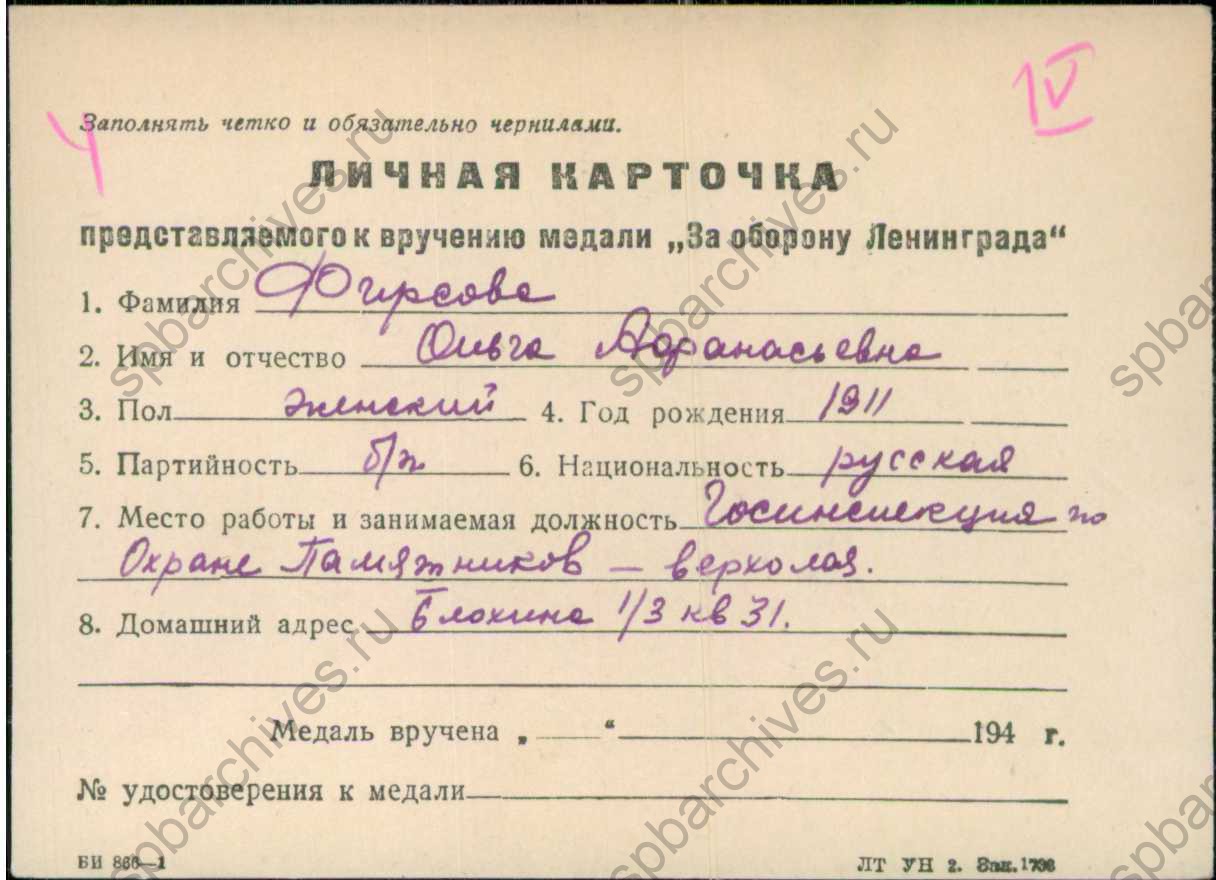 IV
Заполнять четко и обязательно чернилами.
ЛИЧНАЯ КАРТОЧКА
представляемого к вручению медали „За оборону Ленинграда“
1. Фамилия Фирсова
2. Имя и отчество Ольга Афанасьевна
3. Пол женский 4. Год рождения 1911
5. Партийность б/п 6. Национальность русская
7. Место работы и занимаемая должность Госинспекция по
Охране Памятников — верхолаз.
8. Домашний адрес Блохина 1/3 кв 31.
Медаль вручена „ “ 194 г.
№ удостоверения к медали
БИ 866—1 ЛТ УН 2. Зак. 1796
spbarchives.ru